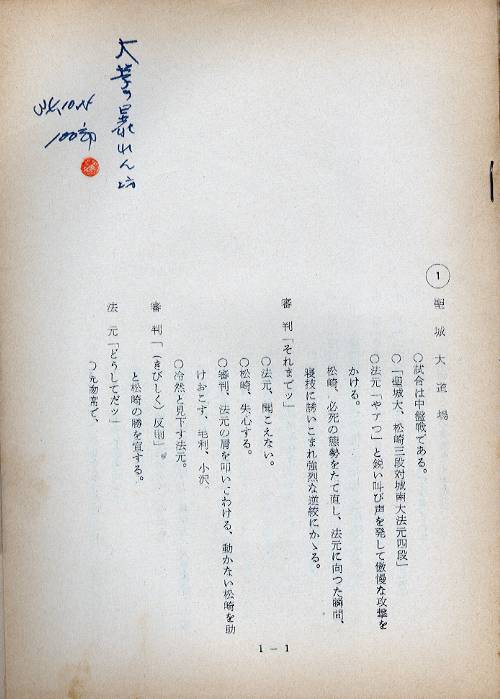 大学の暴れん坊
100部
① 聖城大道場
○試合は中盤戦である。
○「聖城大、松崎三段対城南大法元四段」
○法元「やアつ」と鋭い叫び声を発して傲慢な攻撃を
かける。
松崎、必死の態勢をたて直し、法元に向つた瞬間、
寝技に誘いこまれ強烈な逆絞にかゝる。
審判「それまでッ」
○法元、聞こえない。
○松崎、失心する。
○審判、法元の肩を叩いてわける、動かない松崎を助
けおこす、毛利、小沢、
○冷然と見下す法元。
審判「(きびしく)反則」
と松崎の勝を宣する。
法元「どうしてだッ」
1-1